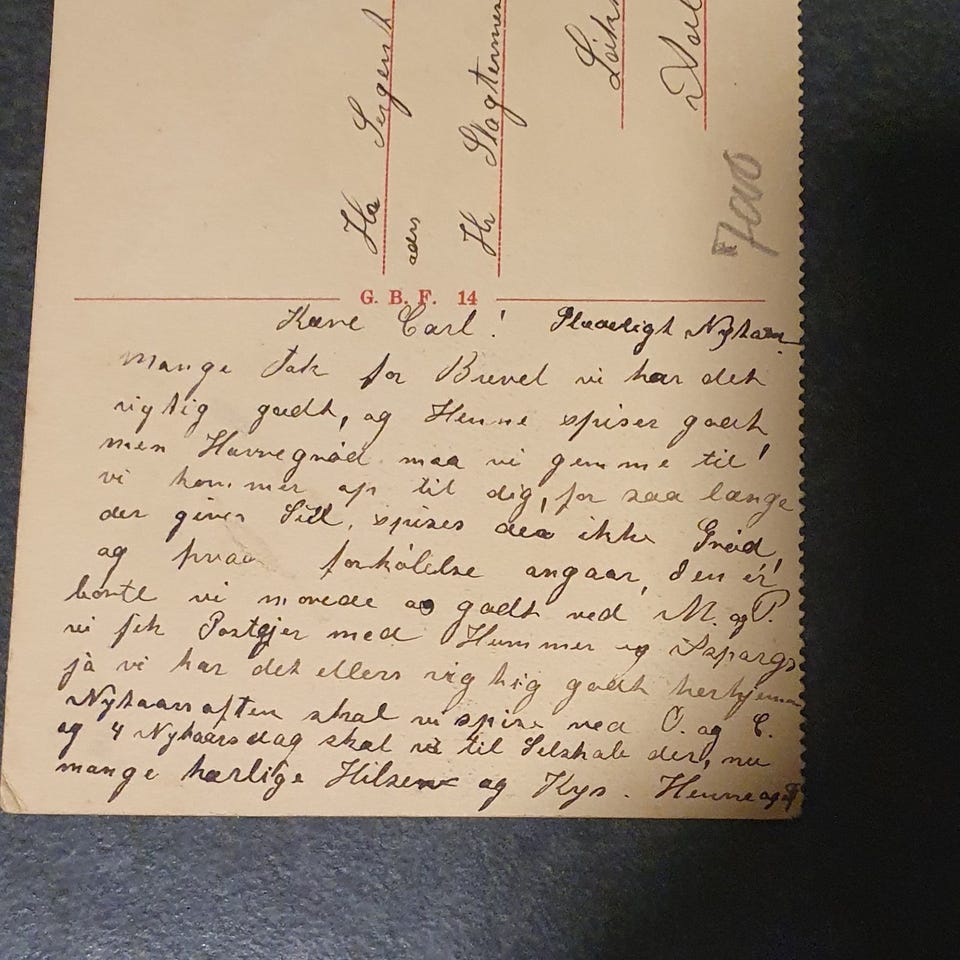 Hr Sergent
adr
Hr Slagterme
Lök
7100
G. B. F. 14
Kære Carl! Glædeligt Nytaar
mange Tak for Brevet vi har det
rigtig godt, og Henne spiser godt,
men Havregrød maa vi gemme til
vi kommer op til dig, for saa længe
der gives Sill, spises der ikke Grød,
og hvad forkölelse angaar, den er
borte vi morede os godt ved M. og P.
vi fik Postejer med Hummer og Aspargs
jà vi har det ellers rigtig godt herhjemme
Nytaarsaften skal vi spise ved O. og C.
og 4 Nytaarsdag skal vi til Selskab der, nu
mange hærlige Hilsen og Kys. Henne og